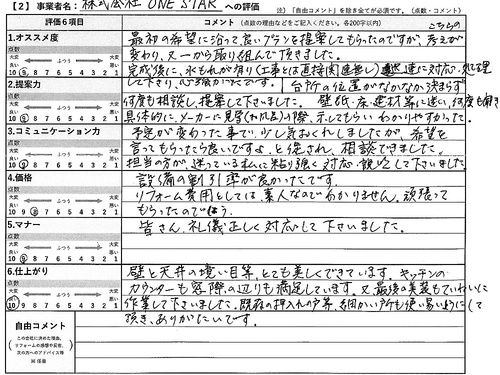 【2】 事業者名: 株式会社 ONE STAR への評価
「注」「自由コメント」を除き全てが必須です。(点数・コメント)
評価6項目
コメント (点数の理由などをご記入ください。各200字以内)
こちらの
1.オススメ度
点数
大変良い ふつう 大変悪い
10 9 8 7 6 5 4 3 2 1
最初の希望に沿って良いプランを提案してもらったのですが、考えが
変わり、又一から取り組んで頂きました。
完成後に、水もれが有り(工事とは直接関連無し)迅速に対応・処理
して下さり、心強かったです。
2.提案力
点数
大変良い ふつう 大変悪い
10 9 8 7 6 5 4 3 2 1
台所の位置がなかなか決まらず
何度も相談し、提案して下さいました。壁紙・床建材等に迷い、何度も
具体的に、メーカーに見学の際、示してもらい わかりやすかった。
3.コミュニケーション力
点数
大変良い ふつう 大変悪い
10 9 8 7 6 5 4 3 2 1
予定が変わった事で、少し気おくれしましたが、希望を
言ってもらったら良いですよ、と促され、相談できました。
担当の方が、迷っている私に粘り強く対応して下さいました
4.価格
点数
大変良い ふつう 大変悪い
10 9 8 7 6 5 4 3 2 1
設備の割引率が良かったです。
リフォーム費用としては、素人なのでわかりません。頑張って
もらったのでしょう。
5.マナー
点数
大変良い ふつう 大変悪い
10 9 8 7 6 5 4 3 2 1
皆さん、礼儀正しく対応して下さいました。
6.仕上がり
点数
大変良い ふつう 大変悪い
10 9 8 7 6 5 4 3 2 1
壁と天井の境い目等、とても美しくできています。キッチンの
カウンターも窓際の辺りも満足しています。又、最後の美装もていねいに
作業して下さいました。既存の押入れの戸等、細かい所も使い易いようにして
頂き、ありがたいです。
自由コメント
(この会社に決めた理由、
リフォームの感想や反省、
次の方へのアドバイス等
※任意